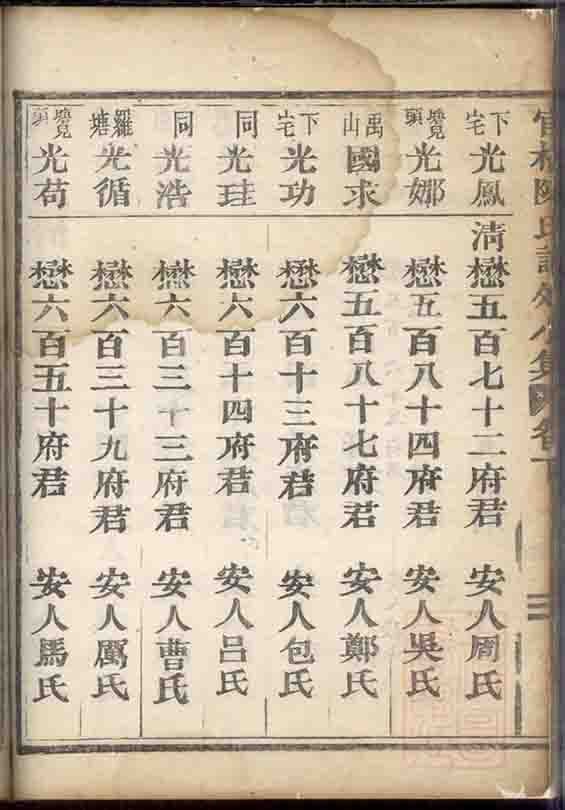 下宅光鳳 清懋五百七十二府君 安人周氏
甓頭光娜 懋五百八十四府君 安人吳氏
禹山國求 懋五百八十七府君 安人鄭氏
下宅光功 懋六百十三府君 安人包氏
同光珪 懋六百十四府君 安人呂氏
同光浩 懋六百三十三府君 安人曹氏
羅塘光循 懋六百三十九府君 安人厲氏
甓頭光苟 懋六百五十府君 安人馬氏